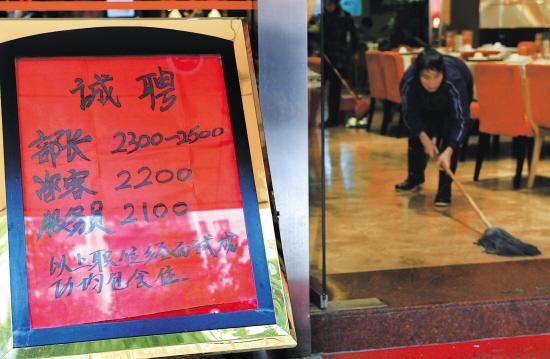 诚聘
部长 2300-2500
迎客 2200
服务员 2100
以上职位经面试成
功均包食住